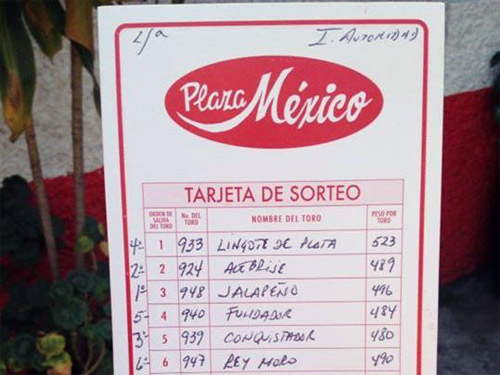 I. AUTORIDAD
Plaza México
TARJETA DE SORTEO
ORDEN DE SALIDA DEL TORO No. DEL TORO NOMBRE DEL TORO PESO POR TORO
4º 1 933 LINGOTE DE PLATA 523
2º 2 924 ALEBRIJE 489
1º 3 948 JALAPEÑO 496
5º 4 940 FUNDADOR 484
3º 5 939 CONQUISTADOR 480
6º 6 947 REY MORO 490